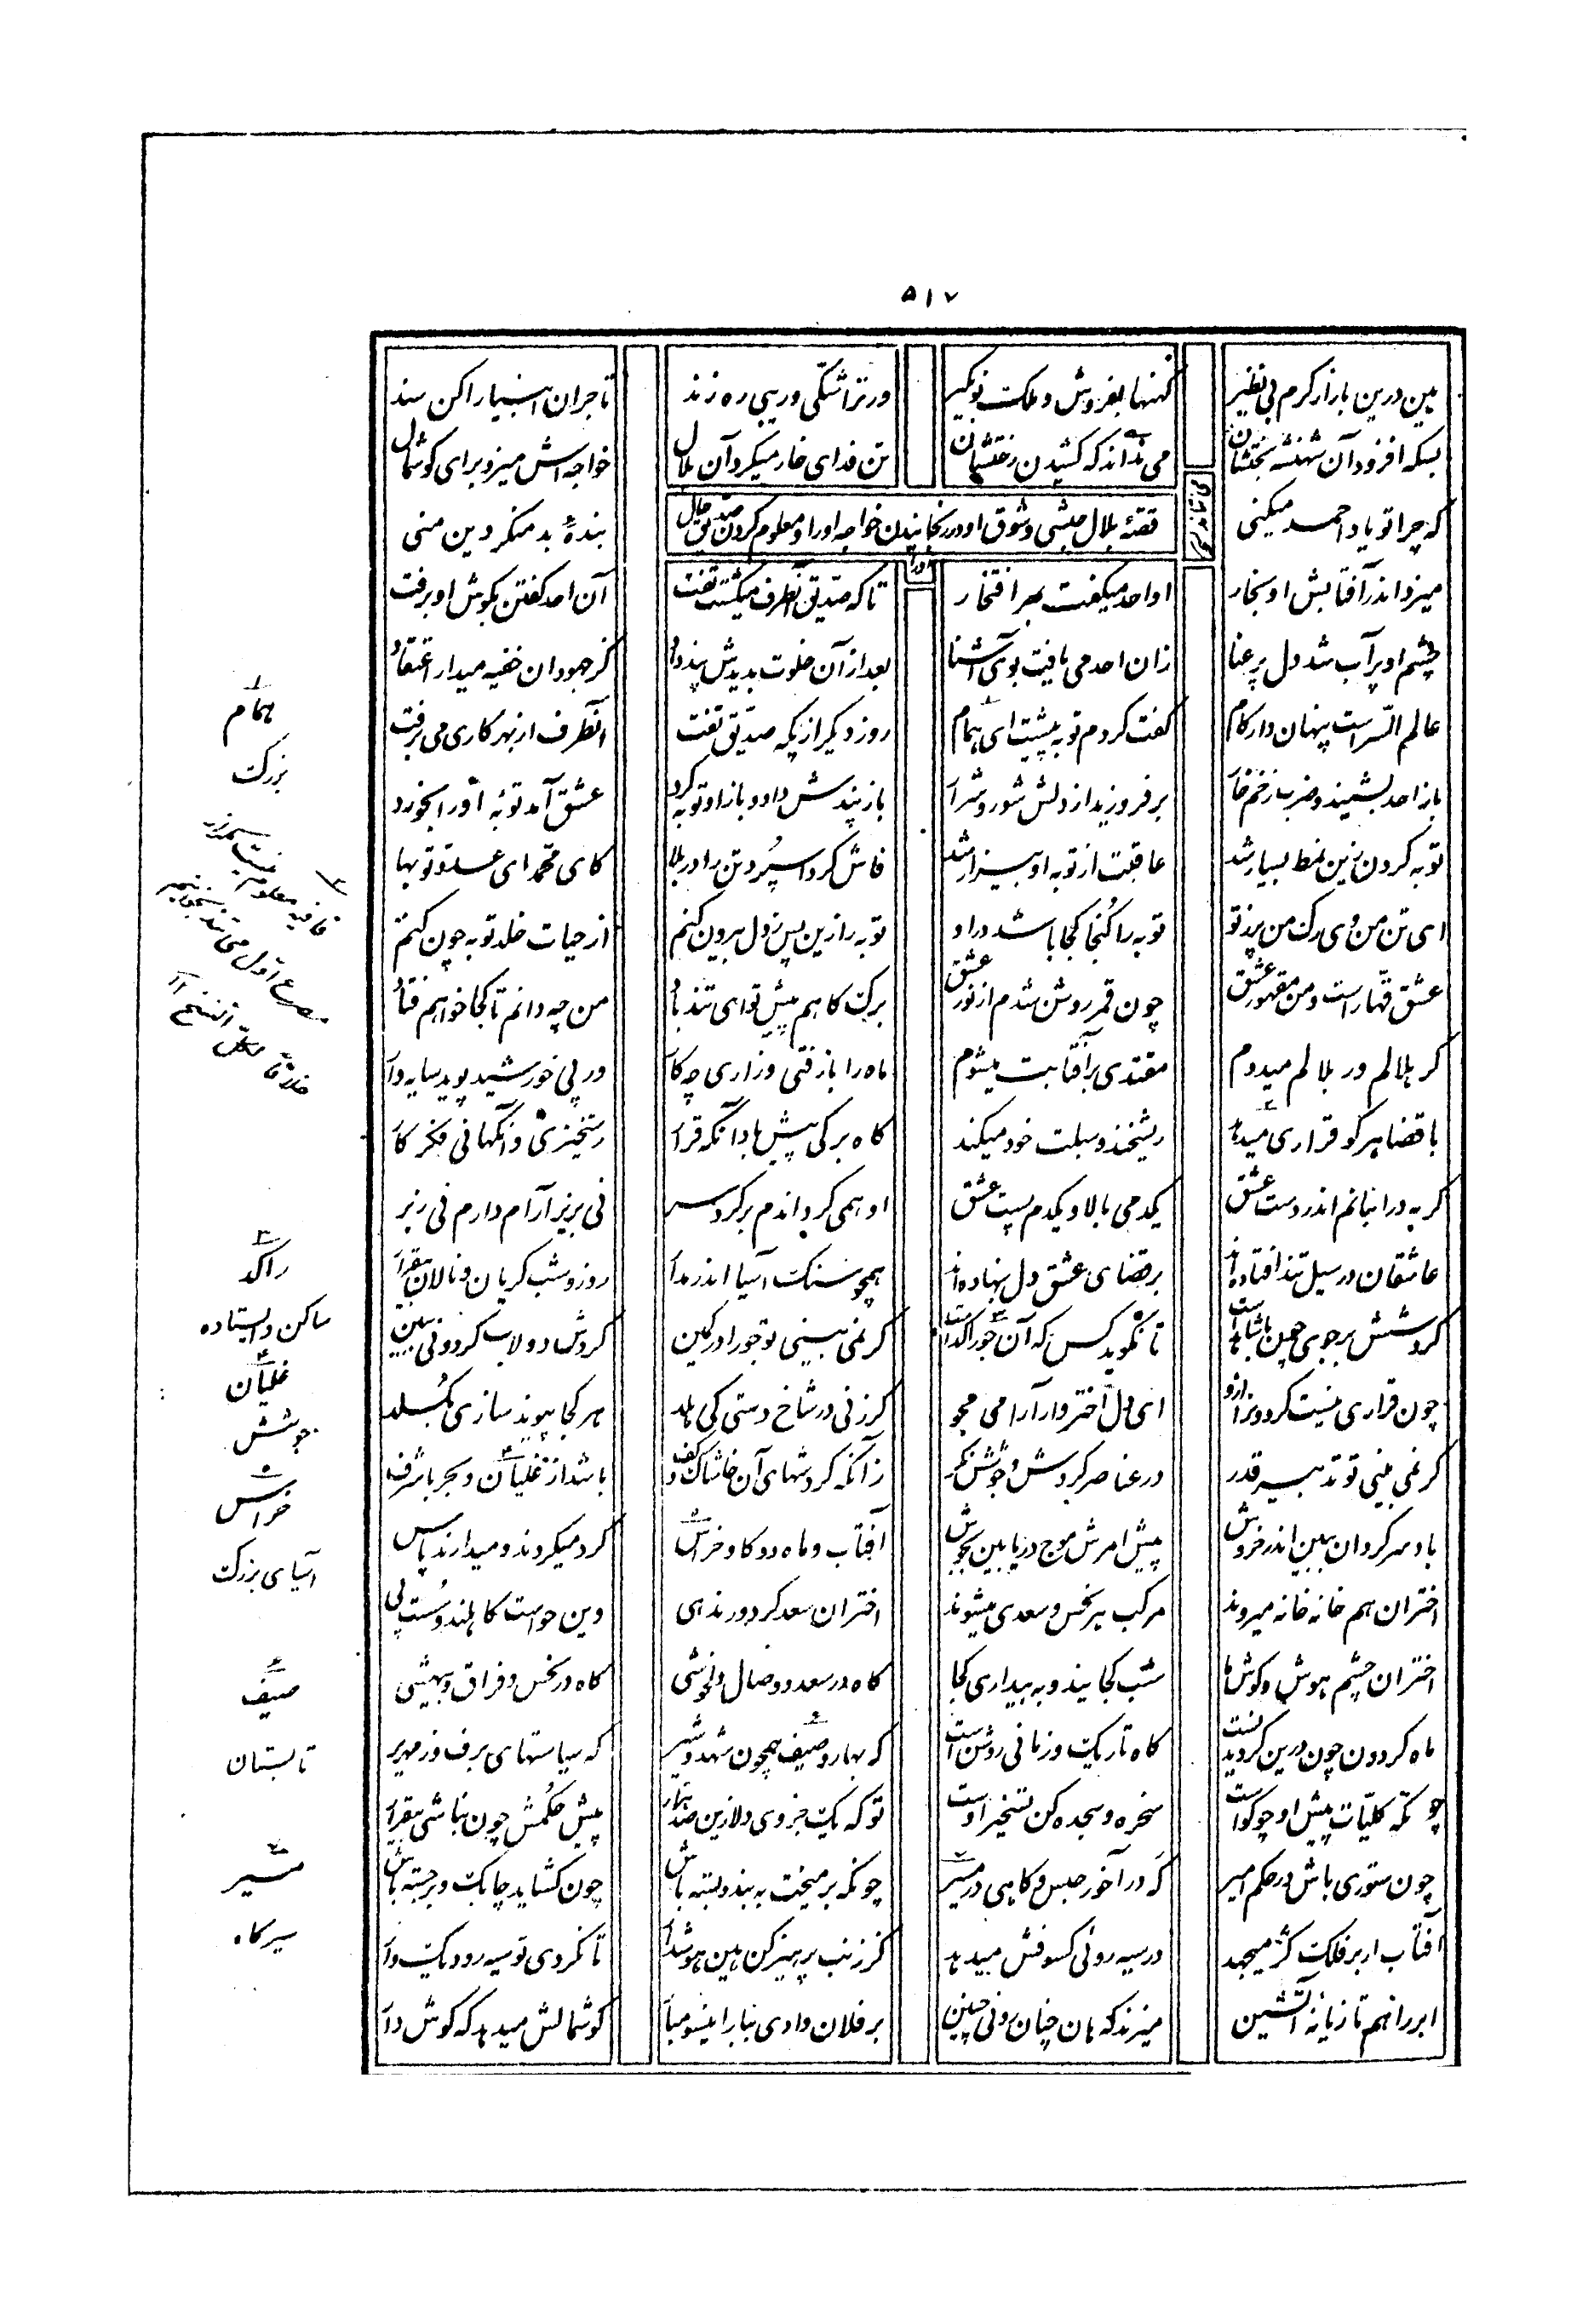 ٥١٧
هین درین بازار کرم بی نظیر کهنها بفروش و ملکت نوبگیر ور ترا شکی و ریبی ره زند تاجران انبیا را کن سند
بسکه افزود آن شهنشه بختشان می نداند که کشیدن رختشان تن فدای خار میکرد آن بلال خواجه اش میزد برای کوشمال
قصّهٔ بلال حبشی و شوق او و رنجانیدن خواجه اورا و معلوم کردن صدیق حال اورا
که چرا تو یاد احمد میکنی بندهٔ بد منکر دین منی
میزد اندر آفتابش او بخار او احد میکفت بهر افتخار تا که صدّیق آنطرف میکشت تفت آن احد کفتن بکوش او برفت
چشم او پر آب شد دل پر عنا زان احد می یافت بوی آشنا بعد از آن خلوت بدیدش پند داد کز جهودان خفیه میدار اعتقاد
عالم السّر است پنهان دار کام کفت کردم توبه پیشت ای همام روز دیکر از پکه صدّیق تفت آنطرف از بهر کاری می برفت
باز احد بشنید و ضرب زخم خار بر فروزید از دلش شور و شرار باز پندش داد و باز او توبه کرد عشق آمد توبهٔ او را بخورد
توبه کردن زین نمط بسیار شد عاقبت از توبه او بیزار شد فاش کرد اسپُرد تن را در بلا کای محمّد ای عدوّ توبها
ای تن من وی رک من پر ز تو توبه را کُنجا کجا باشد درو توبه را زین پس ز دل بیرون کنم از حیات خلد توبه چون کنم
عشق قهّار است و من مقهور عشق چون قمر روشن شدم از نور عشق برک کاهم پیش تو ای تند باد من چه دانم تا کجا خواهم فتاد
کر هلالم ور بلالم میدوم مقتدی بر آفتابت میشوم ماه را با زفتی و زاری چه کار در پی خورشید پوید سایه وار
با قضا هر کو قراری میدهد ریشخند سبلت خود میکند کاه برکی پیش باد آنکه قرار رستخیزی وانکهانی فکر کار
کربه در انبانم اندر دست عشق یکدمی بالا و یکدم پست عشق او همی کرداندم بر کرد سر نی بزیر آرام دارم نی زبر
عاشقان در سیل تند افتاده اند بر قضای عشق دل بنهاده اند همچو سنک آسیا اندر مدار روز و شب کریان و نالان بیقرار
کردشش بر جوی جویان شاهد است تا نکوید کس که آن جو راکد است کر نمی بینی تو جو را در کمین کردش دولاب کردونی ببین
چون قراری نیست کردون را ازو ای دل اختر وار آرامی مجو کر زنی در شاخ دستی کی هلد هر کجا پیوند سازی بکسلد
کر نمی بینی تو تدبیر قدر در عناصر کردش و جوشش نکر زانکه کردشهای آن خاشاک و کف باشد از غلیان و بحر باشرف
باد سرکردان ببین اندر خروش پیش امرش موج دریا بین بجوش آفتاب و ماه دو کاو خراس کرد میکردند و میدارند پاس
اختران هم خانه خانه میروند مرکب هر نحس و سعدی میشوند اختران سعد کر دورند هی وین حواست کاهلند و سُست پی
اختران چشم هوش و کوش ما شب کجایند و به بیداری کجا کاه در سعد و وصال و خوشی کاه در نحس و فراق و بیهشی
ماه کردون چون درین کردیدنست کاه تاریک و زمانی روشن است که بهار و صیف همچون شهد و شیر که سیاستهای برف و زمهریر
چونکه کلیّات پیش او چو کوست سخره و سجده کن تسخیر اوست تو که یک جزوی دلا زین صد هزار پیش حکمش چون نباشی بیقرار
چون ستوری باش در حکم امیر که در آخور حبس و کاهی در مسیر چونکه بر میخت به بندد بسته باش چون کشاید چابک و برجسته باش
آفتاب ار بر فلک کژ میجهد در سیه روئی کسوفش میدهد کز ذنب پرهیز کن هین هوشدار تا نکردی تو سیه رو دیک وار
ابر را هم تازیانه آتشین میزند که هان چنان رو نی چنین بر فلان وادی ببار اینسو مبار کوشمالش میدهد که کوش دار
١
همام
بزرک
٢
٣
راکد
ساکن و ایستاده
٤
غلیان
جوشش
٥
خراس
آسیای بزرک
٦
صیف
تابستان
٧
مسیر
سیرکاه